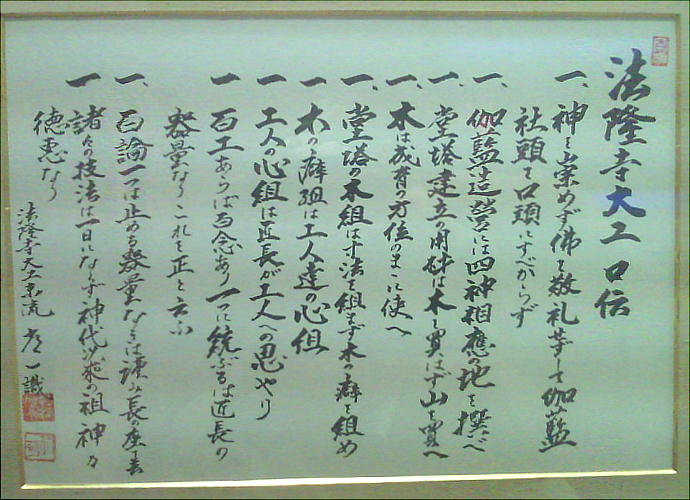 法隆寺大工口伝
一、神を崇めず佛を敬礼せずして伽藍
社頭を口頭にすべからず
一、伽藍造営には四神相應の地を撰べ
一、堂塔建立の用材は木を買はず山を買へ
一、木は成育の方位のまゝに使へ
一、堂塔の木組は寸法を組まず木の癖を組め
一 木の癖組は工人達の心組
一 工人の心組は匠長が工人への思やり
一 百工あらば百念あり一つに統ぶるは匠長の
器量なりこれを正と云ふ
一、百論一つに止める器量なきは謹み長の座を去れ
一 諸々の技法は一日にならず神代以来の祖神の
徳恵なり
法隆寺大工 流 常一識